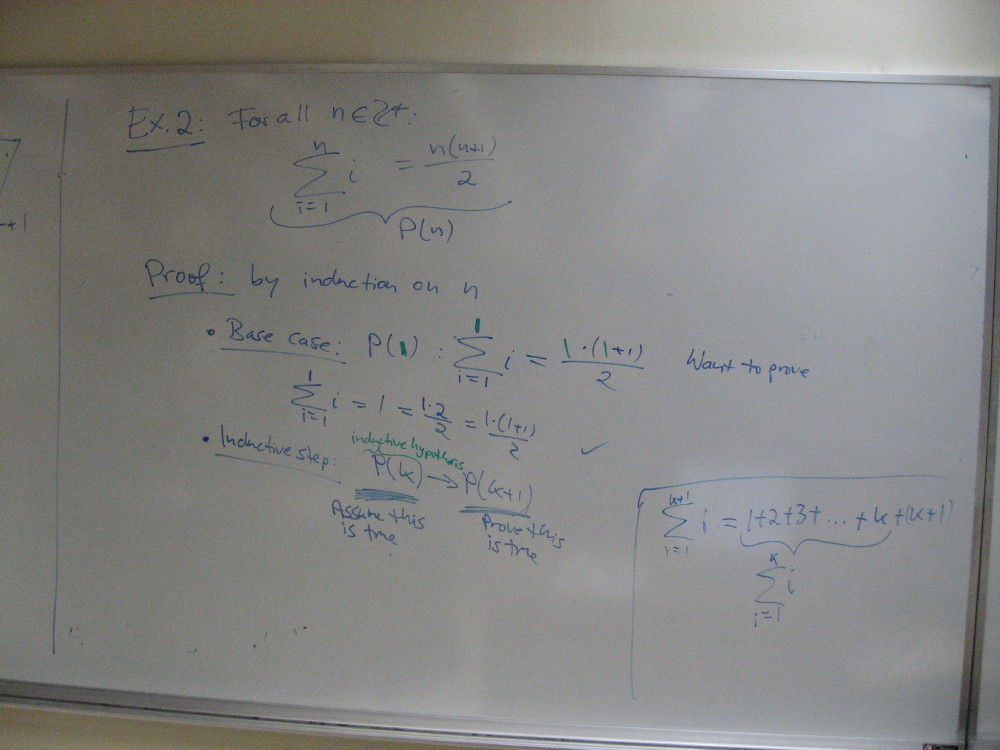 Ex. 2: For all n ∈ Z+:
n
∑ i = n(n+1)/2
i=1
P(n)
Proof: by induction on n
• Base case: P(1) : ∑_{i=1}^{1} i = 1·(1+1)/2 Want to prove
∑_{i=1}^{1} i = 1 = 1·2/2 = 1·(1+1)/2 ✓
inductive hypothesis
• Inductive step: P(k) → P(k+1)
Assume this is true
Prove this is true
∑_{i=1}^{k+1} i = 1+2+3+...+k+(k+1)
∑_{i=1}^{k} i
+1